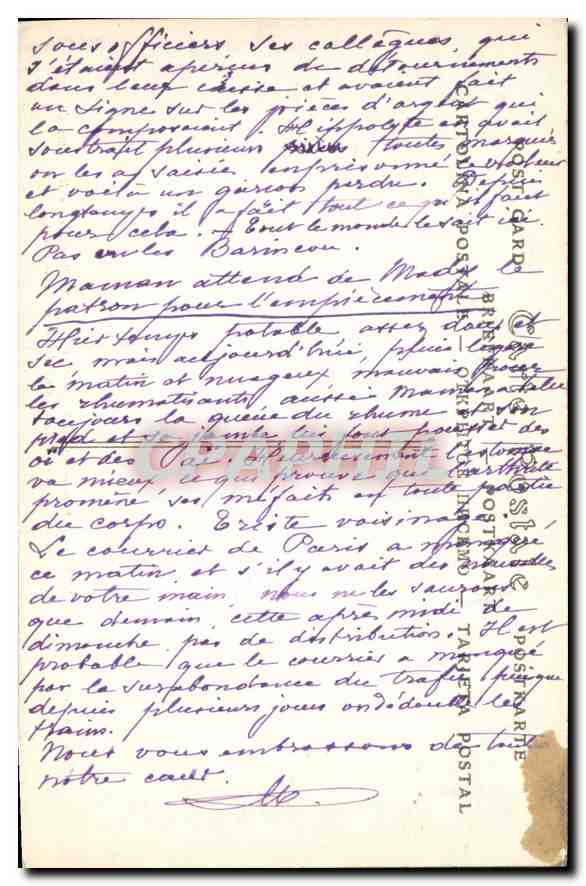 sous officiers, ses collègues, qui
s'étaient aperçus de détournements
dans leur caisse et avaient fait
un signe sur les pièces d'argent qui
la composaient. Hippolyte en avait
soustrait plusieurs toutes marquées
on les a saisies, emprisonné le voleur
et voilà un garçon perdu. Depuis
longtemps il a fait tout ce qu'il faut
pour cela. — Tout le monde le sait ici
Pas les Barincou.
Maman attend de Mad. le
patron pour l'empiècement
Hier temps potable assez doux et
sec, mais aujourd'hui, pluie légère
le matin et nuageux, mauvais pour
les rhumatisants, aussi Maman a-t-elle
toujours la queue du rhume, son
pied et sa jambe lui font pousser des
oï et des Heureusement l'estomac
va mieux ce qui prouve que l'arthrite
promène ses méfaits en toute partie
du corps. Triste voisinage.
Le courrier de Paris a manqué
ce matin et s'il y avait des nouvelles
de votre main, nous ne les saurons
que demain, cette après midi de
dimanche pas de distribution. Il est
probable que le courrier a manqué
par la surabondance du trafic puisque
depuis plusieurs jours on dédouble les
trains.
Nous vous embrassons de tout
notre cœur.
Carte Postale
POST CARD — POSTKARTE
BRIEFKAART — POSTKAART
CARTOLINA POSTALE — TARJETA POSTAL
CPARAMA